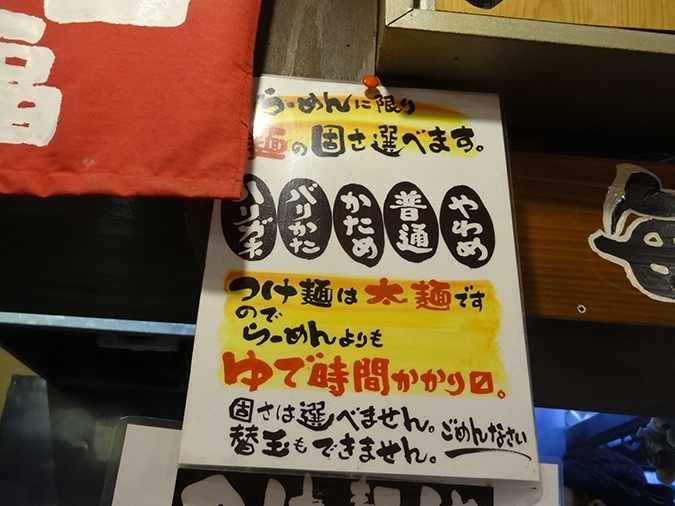 福
らーめんに限り
麺の固さ選べます。
ハリガネ バリかた かため 普通 やわめ
つけ麺は太麺です
ので らーめんよりも
ゆで時間かかり〼。
固さは選べません。
替玉もできません。ごめんなさい